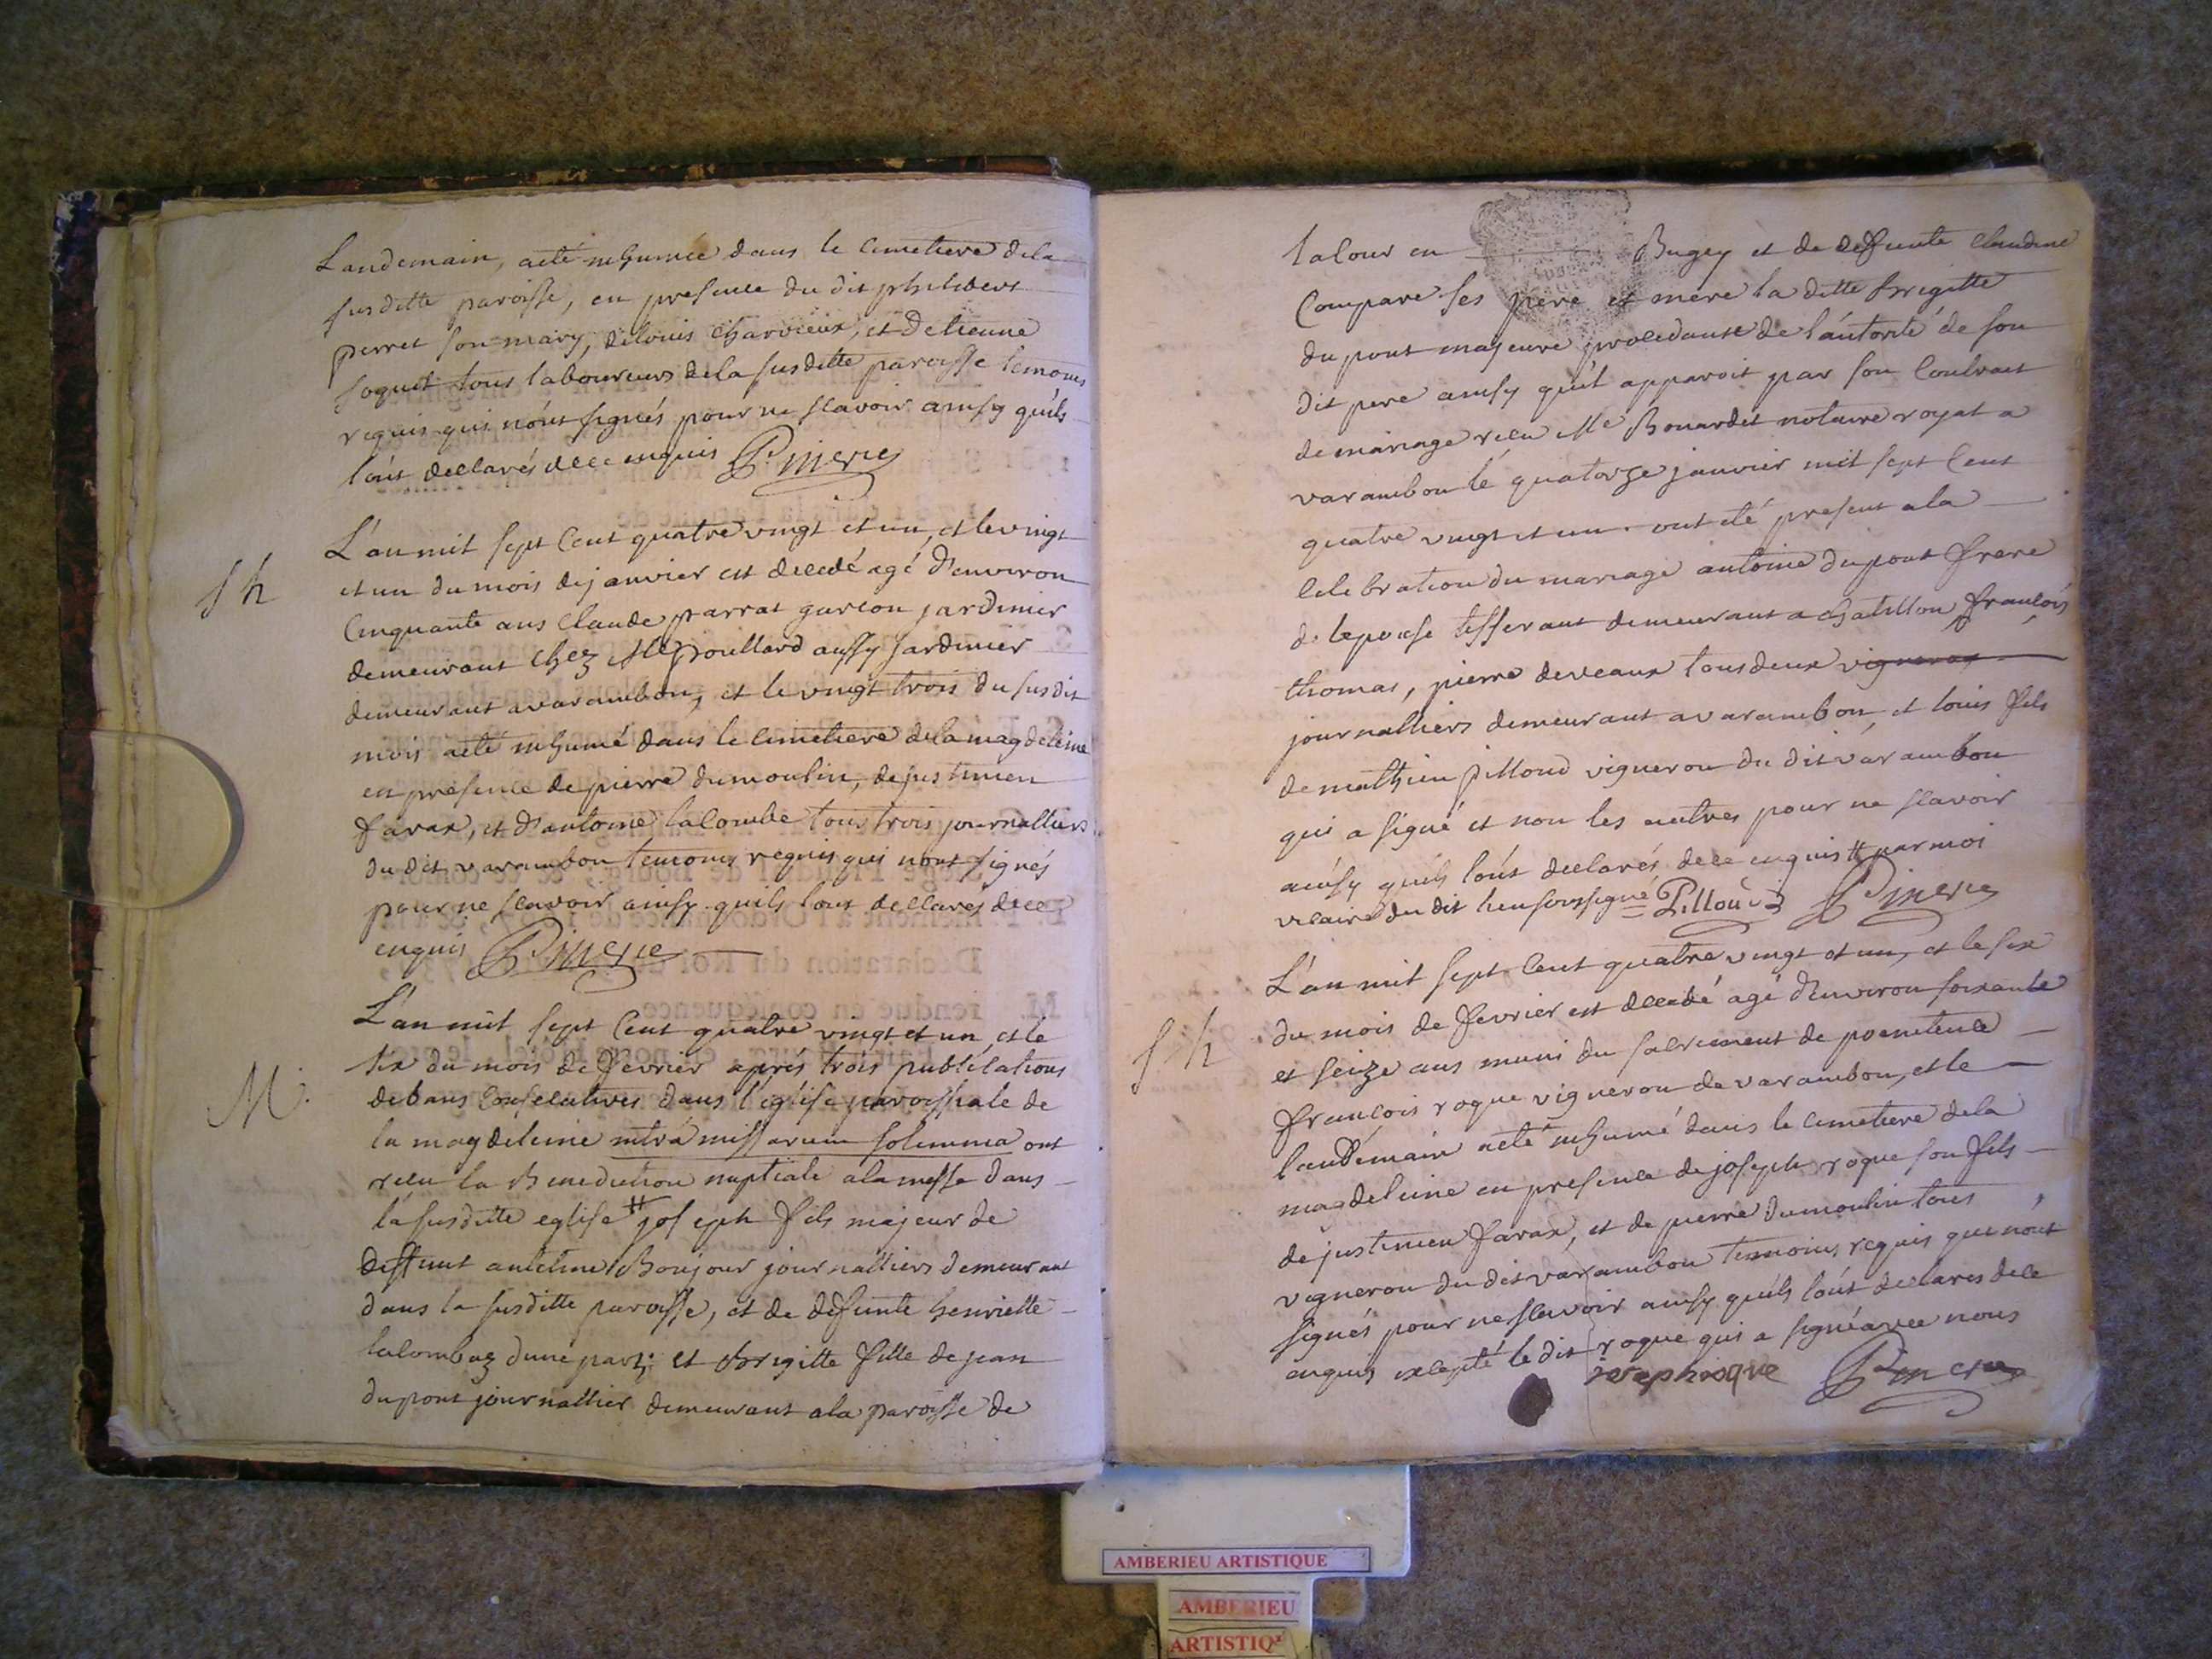 Landemain, aeté inhumée dans le cimetiere dela
susditte paroisse, en presence du dit philibert
perret son mary, delouis charvieux, et detienne
soquet tous laboureurs dela susditte paroisse temoins
requis qui n'ont signés pour ne scavoir ainsy quils
l'ont declarés dece enquis Pinerie
Sh
L'an mil sept cent quatre vingt et un, et levingt
et un du mois dejanvier est decedé agé d'environ
cinquante ans claude parrat garcon jardinier
demeurant chez Mr poullard aussy jardinier
demeurant avarambon, et le vingt trois du susdit
mois aeté inhumé dans le cimetiere dela magdeleine
en presence de pierre dumoulin, dejustinien
farax, et d'antoine lacombe tous trois journalliers
du dit varambon temoins requis qui nont signés
pour ne scavoir ainsy quils lont declarés dece
enquis Pinerie
M.
L'an mil sept cent quatre vingt et un, et le
six du mois de fevrier aprés trois publications
debans consecutives dans l'église paroissiale de
la magdeleine intrá missarum solemnia ont
recu la Benediction nuptiale alamesse dans
la susditte eglise # joseph fils majeur de
deffunt antelme Bonjour journalliers demeurant
dans la susditte paroisse, et de defunte henriette
lalombaz dune part; et brigitte fille de jean
dupont journallier demeurant ala paroisse de
lalour en Bugey et de defunte claudine
Compare ses pere et mere la ditte brigitte
du pont majeure procedante de l'autorité de son
dit pere ainsy qu'il apparoit par son contract
de mariage recu Me Bouardet notaire royal a
varambon le quatorze janvier mil sept cent
quatre vingt et un. ont eté present ala
celebration du mariage antoine dupont frere
de lepouse tisserant demeurant achatillon, francois
thomas, pierre deveaux tousdeux vignerons
journalliers demeurant avarambon, et louis fils
de mathieu pilloud vigneron du dit varambon
qui a signé et non les autres pour ne scavoir
ainsy quils l'ont declarés dece enquis # par moi
vicaire du dit lieu soussigné = Pilloud Pinerie
Sh
L'an mil sept cent quatre vingt et un, et le six
du mois de fevrier est decedé agé d'environ soixante
et seize ans muni du sacrement de poenitence
francois roque vigneron de varambon, et le
landemain aeté inhumé dans le cimetiere dela
magdeleine en presence de joseph roque son fils
de justinien farax, et de pierre dumoulin tous
vigneron du dit varambon temoins requis qui n'ont
signés pour ne scavoir ainsy quils l'ont declarés dece
enquis excepté le dit roque qui a signé avec nous
josephroque Pinerie
AMBERIEU ARTISTIQUE
AMBERIEU
ARTISTIQ